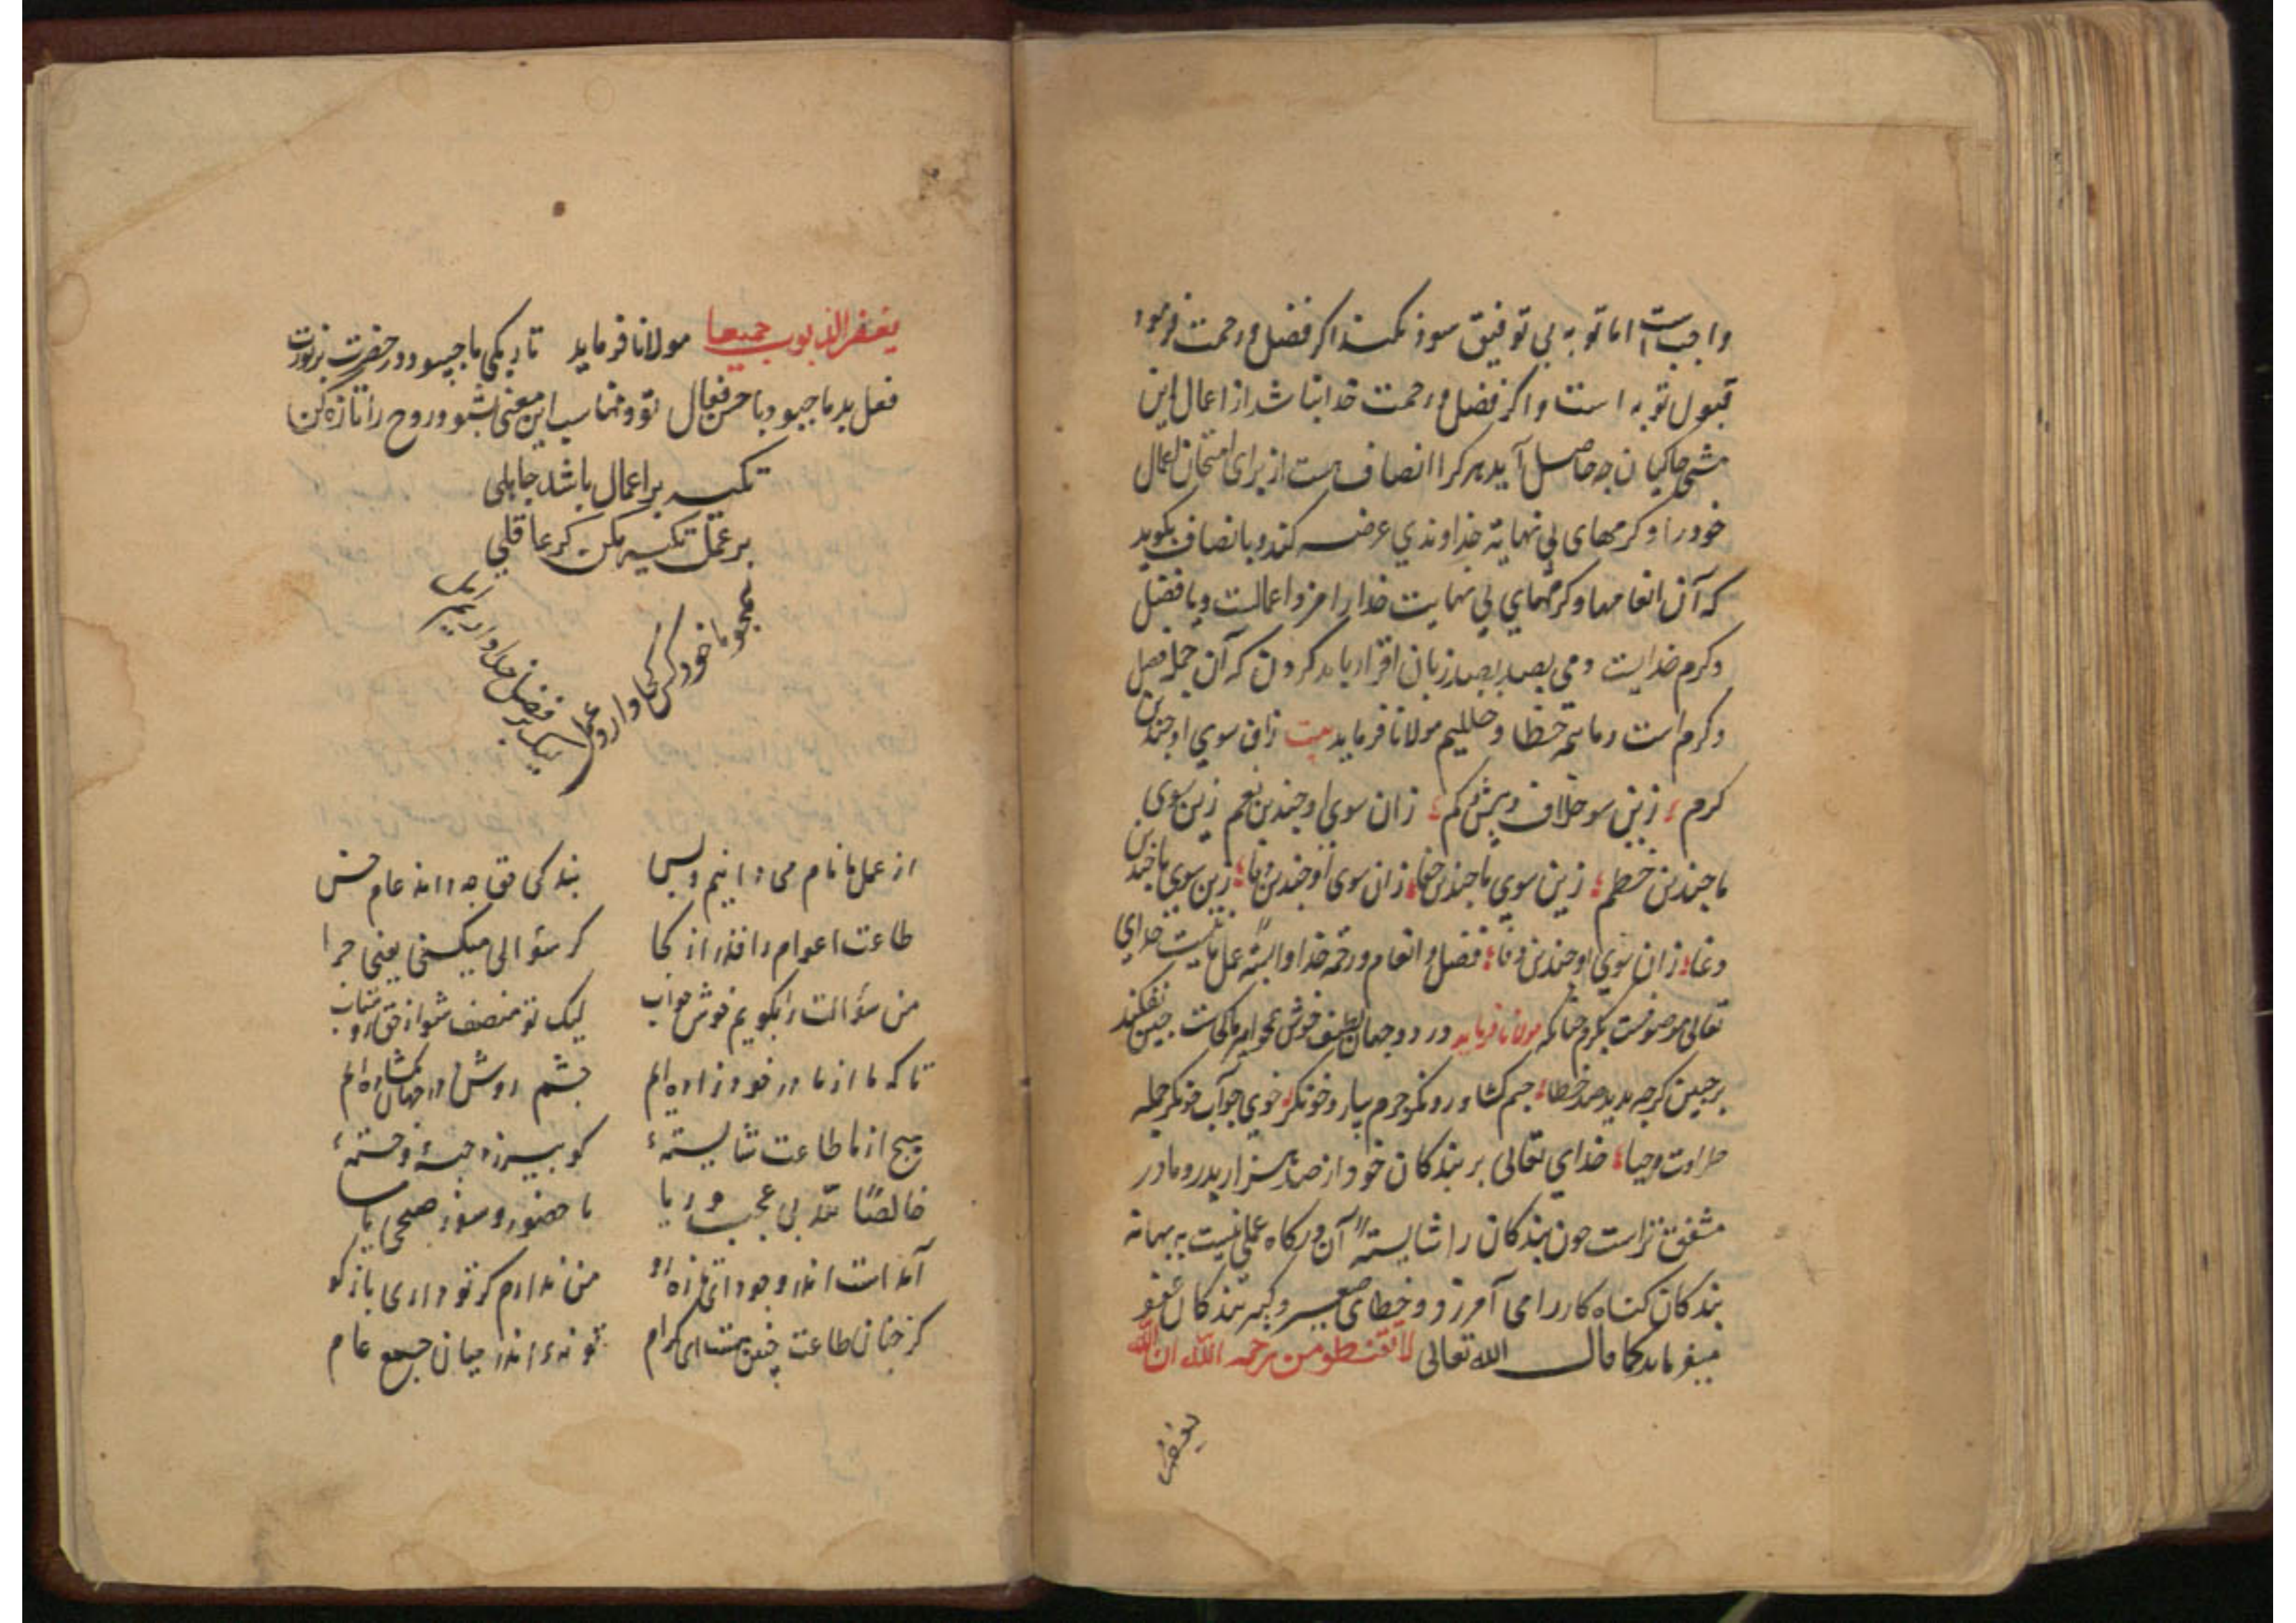 واجبست اما توبه بی توفیق سود نکند اکر فضل و رحمت فرمود
قبول توبه است و اکر فضل و رحمت خدا نباشد از اعمال این
مشتی خاکیان چه حاصل آید هر کرا انصاف هست از برای امتحان اعمال
خود را و کرمهای بی نهایة خداوندی عرضه کند و بانصاف بکوید
که آن انعامها و کرمهای بی نهایت خدا را مزد اعمالست و یا فضل
و کرم خدایست و می بصد بصد زبان اقرار باید کردن که آن جمله فضل
و کرم است و ما همه خطا و خللیم مولانا فرماید بیت زان سوی او چندین
کرم ؛ زین سو خلاف و بیش و کم ؛ زان سوی او چندین نعم زین سوی
ما چندین خطم ؛ زین سوی ما چندین جفا ؛ زان سوی او چندین وفا ؛ زین سوی ما چندین
دغا ؛ زان سوی او چندین وفا ؛ فضل و انعام و رحمة خدا وابستهٔ عمل ما نیست خدای
تعالی موصوفست بکرم چنانکه مولانا فرماید در دو جهان لطیف و خوش همچو امیر ما کجاست جبین نفکند
بر جبین کرچه بدید صد خطا ؛ چشم کشا و رو نکر جرم بیار و خو نکر ؛ خوی جو آب جو نکر جمله
طراوت و حیا ؛ خدای تعالی بر بندکان خود از صد هزار پدر و مادر
مشفق تر است چون بندکان را شایستهٔ آن درکاه عملی نیست به بهانه
بندکان کناه کار را می آمرزد و خطای صغیر و کبیر بندکان عفو
میفرماید کما قال الله تعالی لا تقنطو من رحمة الله ان الله
یغفر
یغفر الذنوب جمیعا مولانا فرماید تاریکی ما چبود در حضرت پر نورت
فعل بد ما چبود با حسن فعال تو و مناسب این معنی بشنو و روح را تازه کن
تکیه بر اعمال باشد جاهلی
بر عمل تکیه مکن کر عاقلی
همچو ما خود کس کجا دارد عمل
لیک بر فضل خدا داریم
از عمل ما نام می دانیم و بس
بندکی حق چه داند عام خس
طاعت اعوام را قدر از کجا
کر سؤالی میکنی یعنی چرا
من سؤالت را بکویم خوش جواب
لیک تو منصف شو از حق رو متاب
تا که ما از مادر خود زاده ایم
چشم روشن در جهان بکشاده ایم
هیچ از ما طاعت شایستهٔ
کو بیرزد حبهٔ و خستهٔ
خالصًا لله بی عجب و ریا
با حضور و سوز صبحی یا مسا
آمد است اندر وجود ای تازه رو
من ندارم کر تو داری باز کو
کر چنان طاعت چنین هست ای کرام
تو نهٔ اندر میان جمع عام